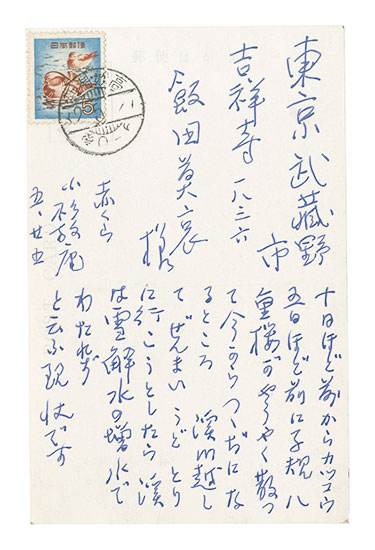 東京 武藏野市
吉祥寺 一八三六
飯田莫哀 様
赤くら
小砂丘
五、廿五
十日ほど前からカツコウ
五日ほど前に子規 八
重桜がやうやく散つ
て今からつゝじにな
るところ 渓川越し
てぜんまい うど とり
に行こうとしたら渓
は雪解水の増水で
わたれず
と云ふ現状です
日本郵便
5
郵便はがき